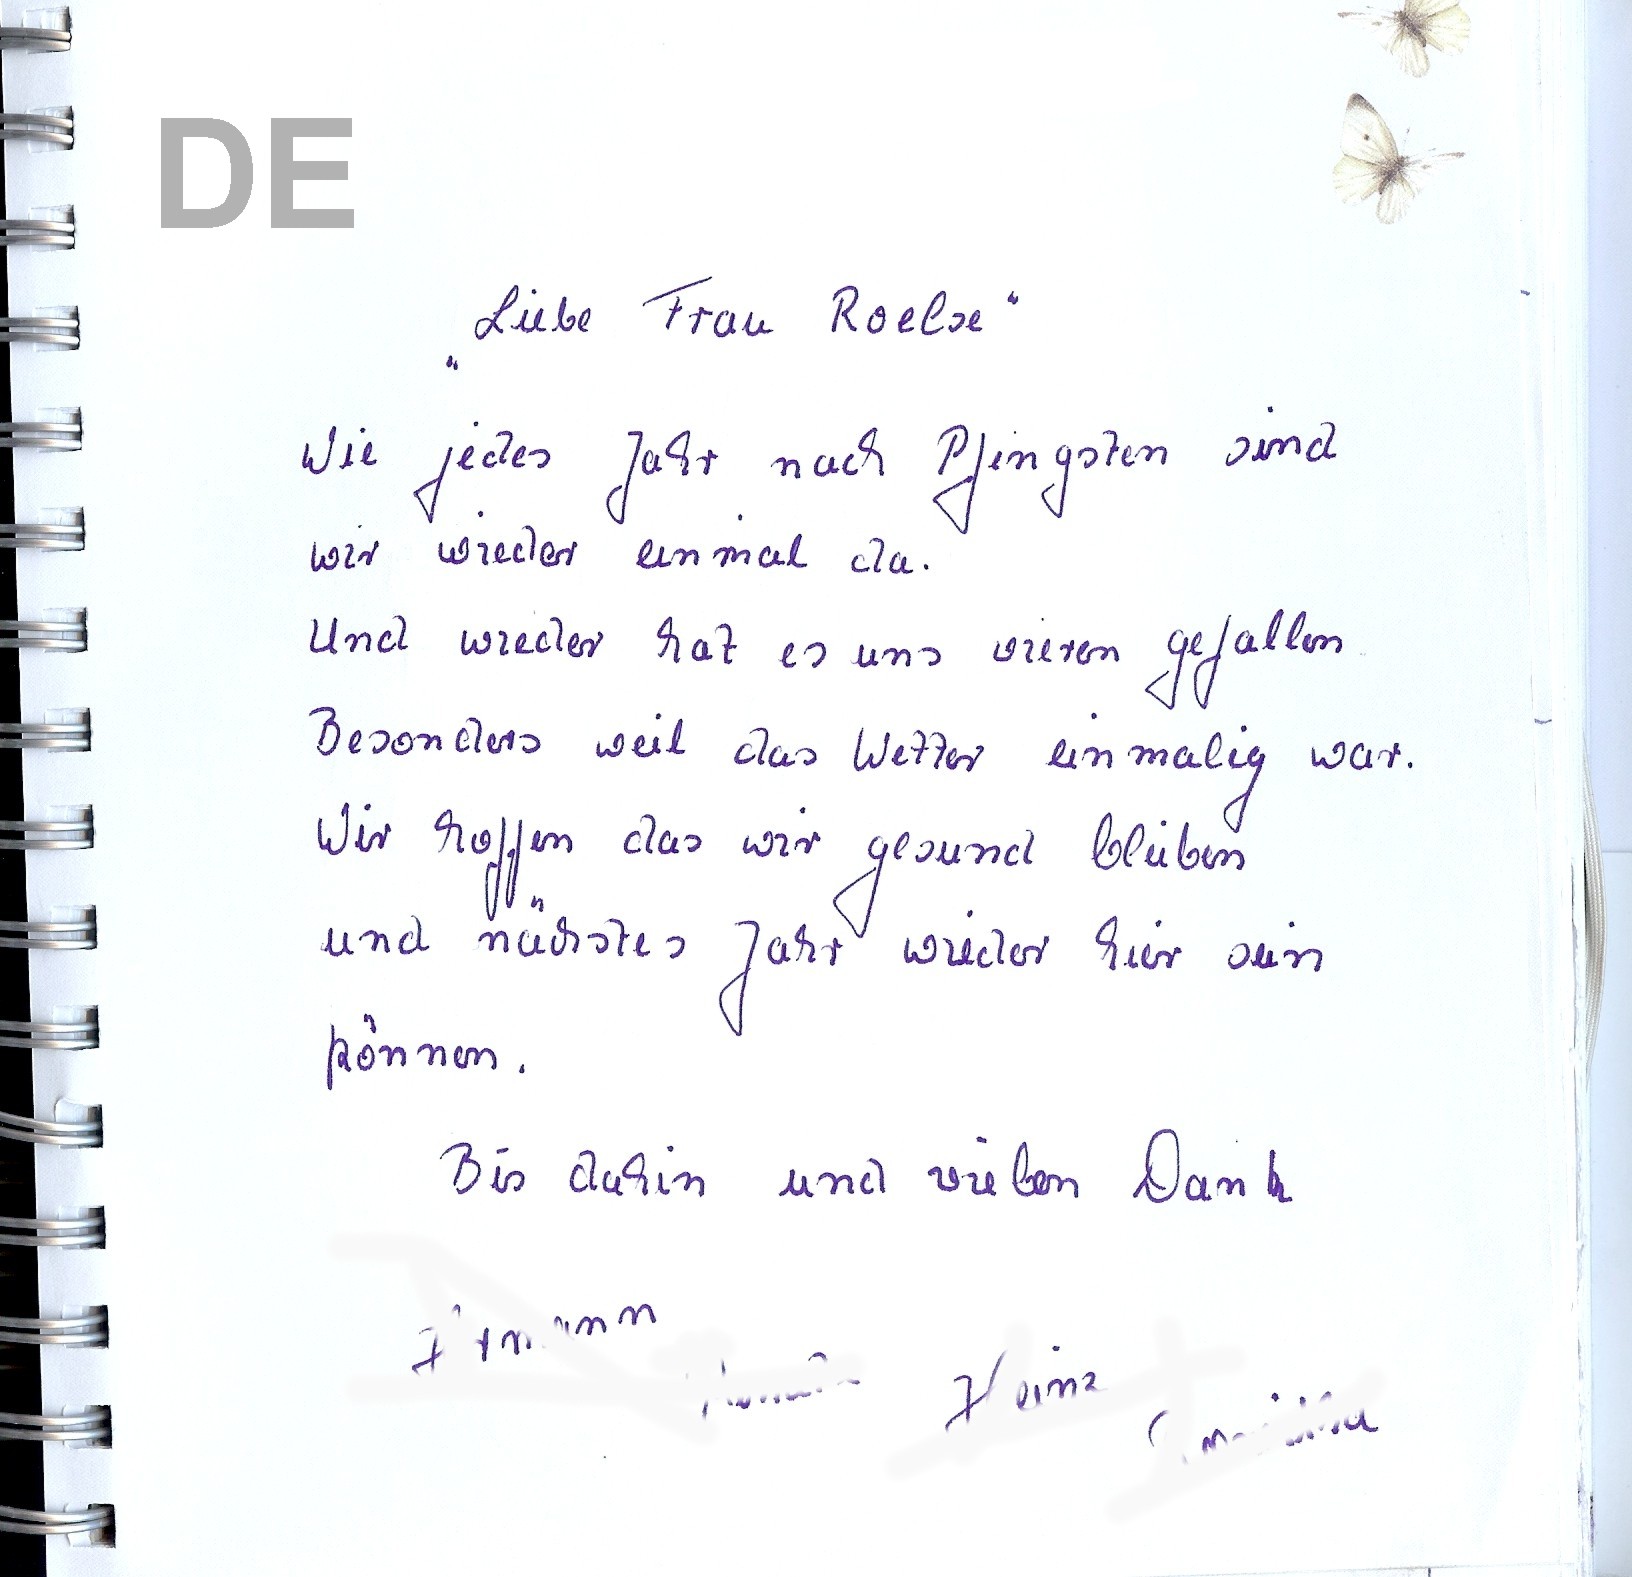 DE
„Liebe Frau Roelse“
Wie jedes Jahr nach Pfingsten sind
wir wieder einmal da.
Und wieder hat es uns vieren gefallen
Besonders weil das Wetter einmalig war.
Wir hoffen das wir gesund bleiben
und nächstes Jahr wieder hier sein
können.
Bis dahin und vielen Dank
Heinz